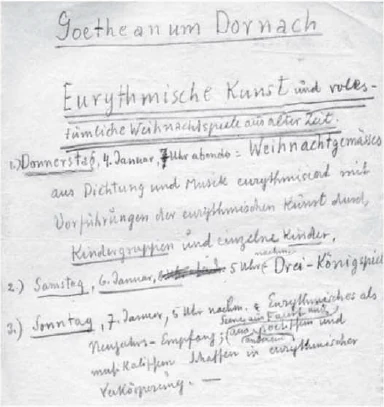 Goetheanum Dornach
Eurythmische Kunst und voles-
tümliche Weihnachtspiele aus alter Zeit.
1.) Donnerstag, 4. Januar, 7 Uhr abends = Weihnachtgemässes
aus Dichtung und Musik eurythmisiert mit
Vorführungen der eurythmischen Kunst durch
Kindergruppen und einzelne Kinder.
2.) Samstag, 6. Januar, 5 Uhr nachm. = Drei-Königspiel
3.) Sonntag, 7. Januar, 5 Uhr nachm. Eurythmisches als
Neujahrs-Empfang; Scene aus Faust aus
poetischem und
anderem
musikalischem Schaffen in eurythmischer
Verkörperung. —